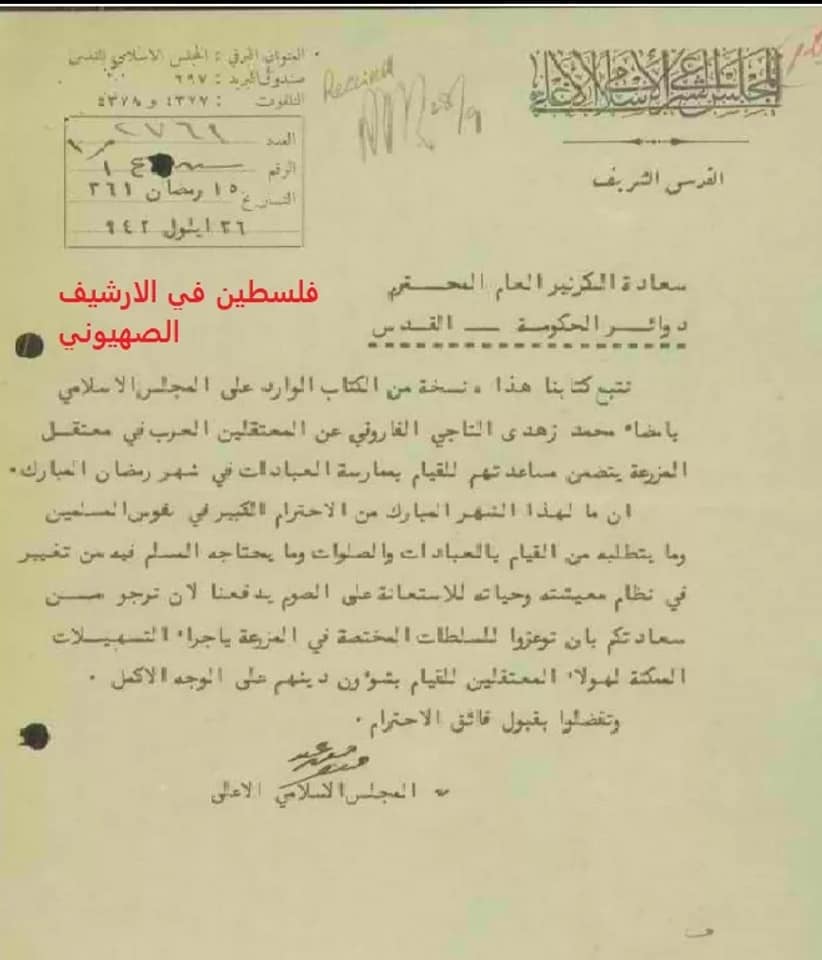 المجلس الشرعي الإسلامي الأعلى
القدس الشريف
العنوان البرقي : المجلس الاسلامي القدس
صندوق البريد : ٦٩٧
التلفون : ٤٣٧٧ و ٥٣٧٨
Received
28/9
العدد ٢٧٦٩
الرقم
التاريخ ١٥ رمضان ٣٦١
٢٦ ايلول ٩٤٢
سعادة السكرتير العام المحترم
دوائر الحكومة — القدس
فلسطين في الارشيف
الصهيوني
نتبع كتابنا هذا نسخة من الكتاب الوارد على المجلس الاسلامي
بامضاء محمد زهدى التاجي الفاروقي عن المعتقلين العرب في معتقل
المزرعة يتضمن مساعدتهم للقيام بممارسة العبادات في شهر رمضان المبارك .
ان ما لهذا الشهر المبارك من الاحترام الكبير في نفوس المسلمين
وما يتطلبه من القيام بالعبادات والصلوات وما يحتاجه المسلم فيه من تغيير
في نظام معيشته وحياته للاستعانة على الصوم يدفعنا لان نرجو من
سعادتكم بان توعزوا للسلطات المختصة في المزرعة باجراء التسهيلات
الممكنة لهولاء المعتقلين للقيام بشوءون دينهم على الوجه الاكمل .
وتفضلوا بقبول فائق الاحترام .
المجلس الاسلامي الاعلى